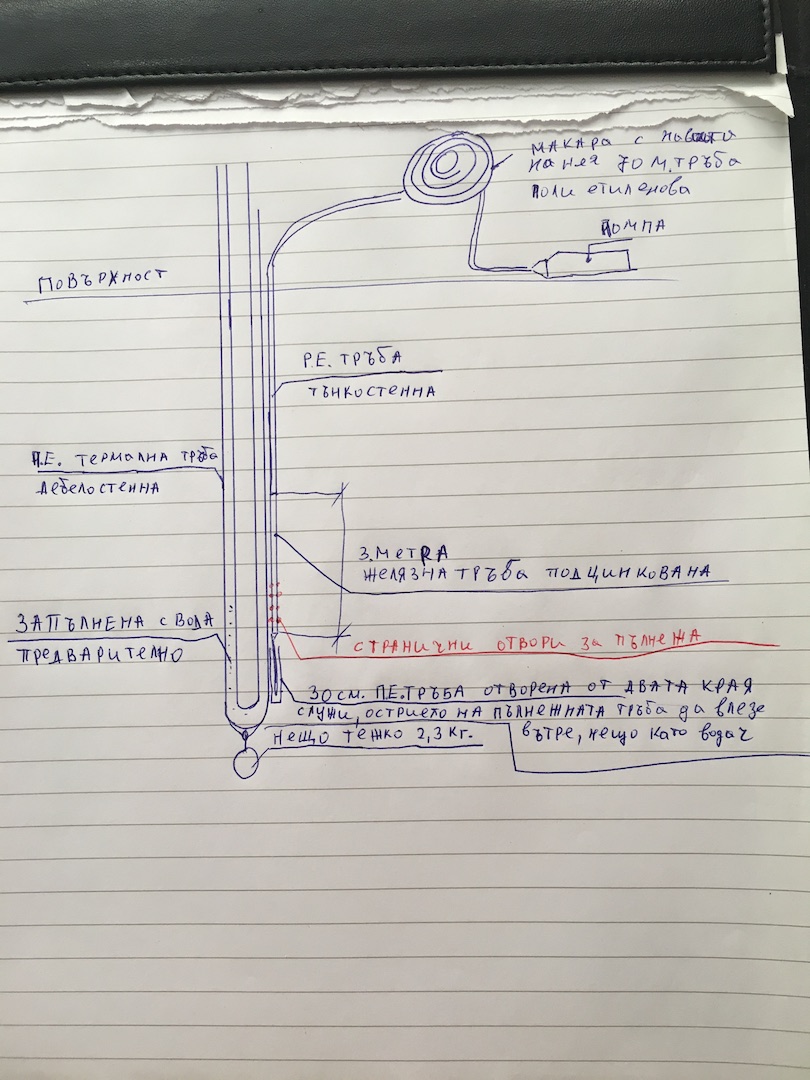 МАКАРА С НАВИТА
НА НЕЯ 70 М. ТРЪБА
ПОЛИ ЕТИЛЕНОВА
ПОМПА
ПОВЪРХНОСТ
P.E. ТРЪБА
ТЪНКОСТЕННА
П.Е. ТЕРМАЛНА ТРЪБА
ДЕБЕЛОСТЕННА
3.МЕТRА
ЖЕЛЯЗНА ТРЪБА ПОДЦИНКОВАНА
ЗАПЪЛНЕНА С ВОДА
ПРЕДВАРИТЕЛНО
СТРАНИЧНИ ОТВОРИ ЗА ПЪЛНЕЖА
30 СМ. ПЕ.ТРЪБА ОТВОРЕНА ОТ ДВАТА КРАЯ
СЛУЖИ, ОСТРИЕТО НА ПЪЛНЕЖНАТА ТРЪБА ДА ВЛЕЗЕ
ВЪТРЕ, НЕЩО КАТО ВОДАЧ
НЕЩО ТЕЖКО 2,3 КГ.